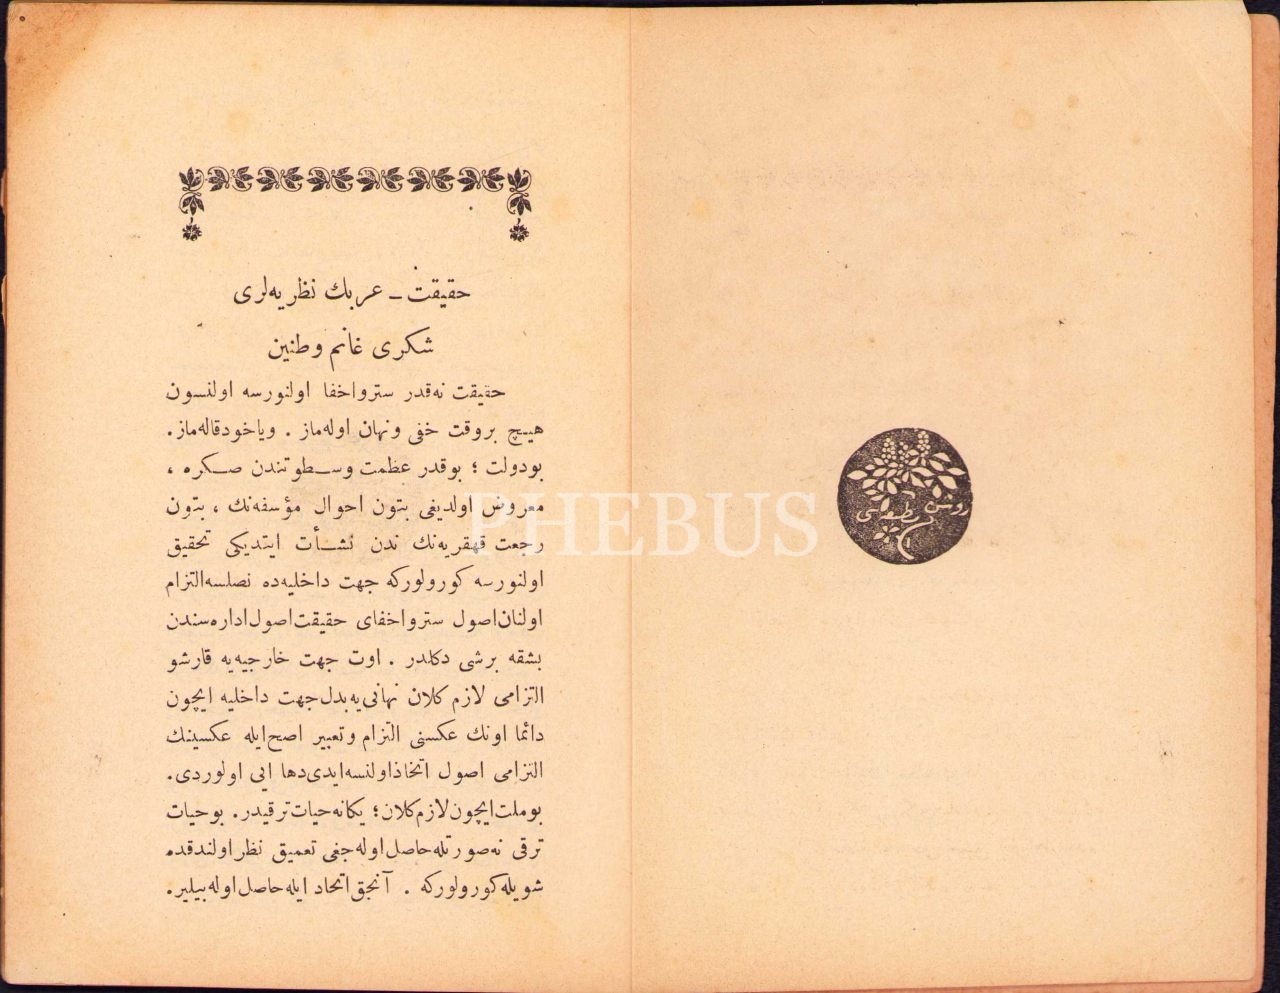 روشن
مطبعه‌سی
حقیقت – عربك نظریه‌لری
شكری غانم وطنین
حقیقت نه‌قدر سترواخفا اولنورسه اولنسون
هیچ بروقت خفی ونهان اوله‌ماز . ویاخودقاله‌ماز.
بودولت ؛ بوقدر عظمت وسطوتندن صكره ،
معروض اولدیغی بتون احوال مؤسفه‌نك ، بتون
رجعت قهقریه‌نك ندن نشأت ایتدیكی تحقیق
اولنورسه كورولوركه جهت داخلیه‌ده نصلسه‌التزام
اولنان‌اصول سترواخفای حقیقت‌اصول‌اداره‌سندن
بشقه برشی دكلدر . اوت جهت خارجیه‌یه قارشو
التزامی لازم كلان نهانی‌یه‌بدل‌جهت داخلیه ایچون
دائما اونك عكسنی التزام وتعبیر اصح‌ایله عكسینك
التزامی اصول اتخاذاولنسه‌ایدی‌دها ایی اولوردی.
بوملت‌ایچون‌لازم‌كلان؛ یكانه‌حیات‌ترقیدر. بوحیات
ترقی نه‌صورتله‌حاصل‌اوله‌جغی تعمیق نظراولندقده
شویله‌كورولوركه . آنجق‌اتحاد ایله‌حاصل‌اوله‌بیلیر.
PHEBUS